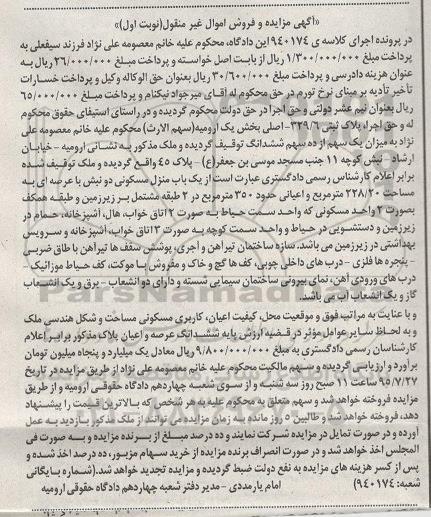 «آگهی مزایده و فروش اموال غیر منقول(نوبت اول)»
در پرونده اجرای کلاسه ی ۹۴۰۱۷۴ این دادگاه، محکوم علیه خانم معصومه علی نژاد فرزند سیفعلی به
پرداخت مبلغ ۱/۳۰۰/۰۰۰/۰۰۰ ریال از بابت اصل خواسته و پرداخت مبلغ ۲۶/۰۰۰/۰۰۰ ریال به
عنوان هزینه دادرسی و پرداخت مبلغ ۳۰/۶۰۰/۰۰۰ ریال بعنوان حق الوکاله وکیل و پرداخت خسارات
تأخیر تادیه بر مبنای نرخ تورم در حق محکوم له آقای میرجواد نیکنام و پرداخت مبلغ ۶۵/۰۰۰/۰۰۰
ریال بعنوان نیم عشر دولتی و حق اجرا در حق دولت محکوم گردیده و در راستای استیفای حقوق محکوم
له و حق اجرا، پلاک ثبتی ۳۲۹/۶- اصلی بخش یک ارومیه(سهم الارث) محکوم علیه خانم معصومه علی
نژاد به میزان یک سهم از ده سهم ششدانگ توقیف گردیده و ملک مذکور به نشانی ارومیه - خیابان
ارشاد - نبش کوچه ۱۱ جنب مسجد موسی بن جعفر(ع) - پلاک ۴۵ واقع گردیده و ملک توقیف شده
برابر اعلام کارشناس رسمی دادگستری عبارت است از یک باب منزل مسکونی دو نبش با عرصه ای به
مساحت ۲۲۸/۲۰ مترمربع و اعیانی حدود ۳۵۰ مترمربع در ۲ طبقه مشتمل بر زیرزمین و طبقه همکف
بصورت ۲ واحد مسکونی که واحد سمت حیاط به صورت ۲ اتاق خواب، هال، آشپزخانه، حمام در
زیرزمین و دستشویی در حیاط و واحد سمت کوچه به صورت ۳ اتاق خواب، آشپزخانه و سرویس
بهداشتی در زیرزمین می باشد. سازه ساختمان تیرآهن و آجری، پوشش سقف ها تیرآهن با طاق ضربی
- پنجره ها فلزی - درب های داخلی چوبی، کف ها گچ و خاک و مفروش با موکت، کف حیاط موزائیک -
درب های ورودی آهن، نمای بیرونی ساختمان سیمانی شسته و دارای دو انشعاب - برق و یک انشعاب
گاز و یک انشعاب آب می باشد.
و با عنایت به مراتب فوق و موقعیت محل، کیفیت اعیان، کاربری مسکونی مساحت و شکل هندسی ملک
و به لحاظ سایر عوامل مؤثر در قضیه ارزش پایه ششدانگ عرصه و اعیان پلاک مذکور برابر اعلام
کارشناسان رسمی دادگستری به مبلغ ۹/۸۰۰/۰۰۰/۰۰۰ ریال معادل یک میلیارد و پنجاه میلیون تومان
برآورد و ارزیابی گردیده و سهم مالکیت محکوم علیه خانم معصومه علی نژاد از طریق مزایده در تاریخ
۹۵/۷/۲۷ ساعت ۱۱ صبح روز سه شنبه و از سوی شعبه چهاردهم دادگاه حقوقی ارومیه و از طریق
مزایده فروخته خواهد شد و سهم متعلق به محکوم علیه به هر شخص که بالاترین قیمت را پیشنهاد
دهد، فروخته خواهد شد و طالبین ۵ روز مانده به زمان مزایده می توانند از ملک مذکور بازدید به عمل
آورده و در صورت تمایل در مزایده شرکت نمایند و ده درصد مبلغ از برنده مزایده و به صورت فی
المجلس اخذ خواهد شد و در صورت انصراف برنده مزایده از خرید سهام مزبور، ده درصد اخذ شده و
پس از کسر هزینه های مزایده به نفع دولت ضبط گردیده و مزایده تجدید خواهد شد. (شماره بایگانی
شعبه: ۹۴۰۱۷۴) امام یارمددی - مدیر دفتر شعبه چهاردهم دادگاه حقوقی ارومیه